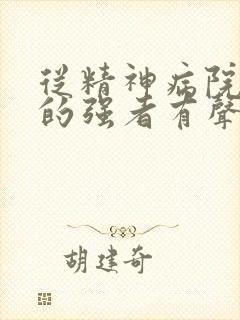 從精神病院
的强者有聲
胡建奇